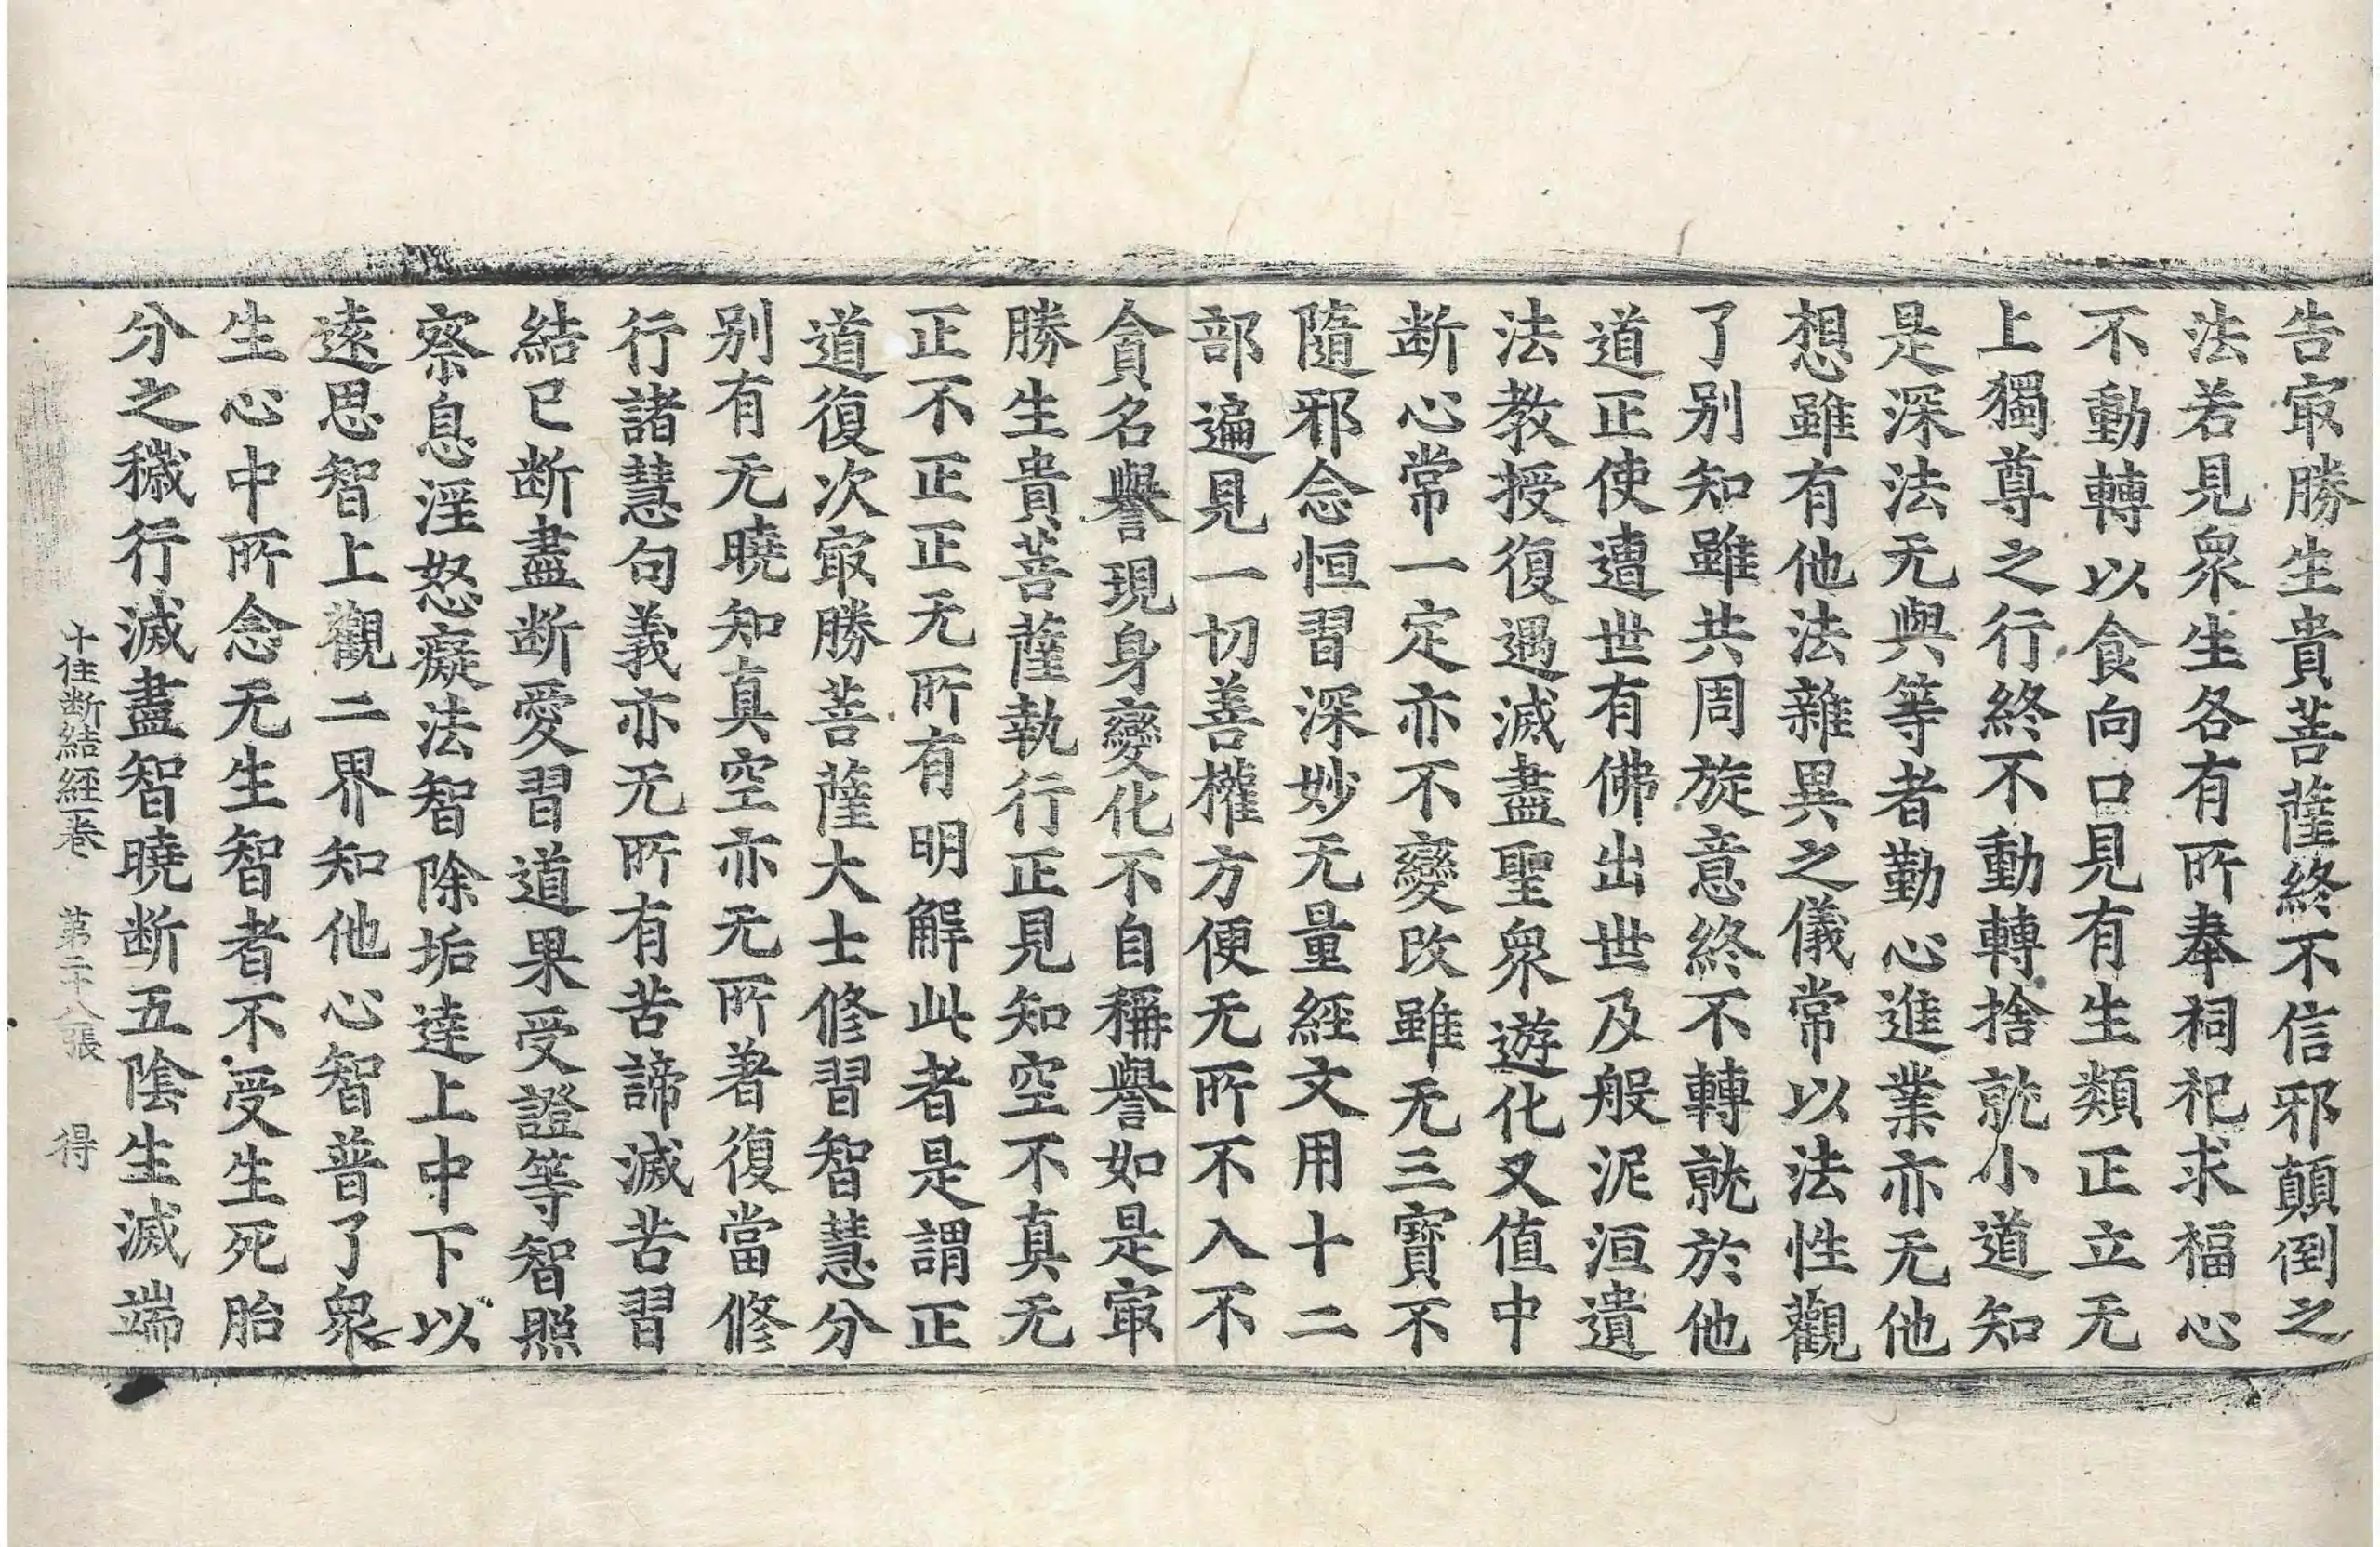 告㝡勝生貴菩薩終不信邪顛倒之
法若見衆生各有所奉祠祀求福心
不動轉以食向口見有生類正立无
上獨尊之行終不動轉捨就小道知
是深法无與等者勤心進業亦无他
想雖有他法雜異之儀常以法性觀
了别知雖共周旋意終不轉就於他
道正使遭世有佛出世及般泥洹遺
法教授復遇滅盡聖衆遊化又值中
断心常一定亦不變改雖无三寶不
隨邪念恒習深妙无量經文用十二
部遍見一切善權方便无所不入不
貪名譽現身變化不自稱譽如是㝡
勝生貴菩薩執行正見知空不真无
正不正正无所有明解此者是謂正
道復次㝡勝菩薩大士修習智慧分
别有无曉知真空亦无所著復當修
行諸慧句義亦无所有苦諦滅苦習
結已断盡断愛習道果受證等智照
察息婬怒癡法智除垢達上中下以
遠思智上觀二界知他心智普了衆
生心中所念无生智者不受生死胎
分之穢行滅盡智曉断五陰生滅端
十住断結經一卷　第二十八張　得